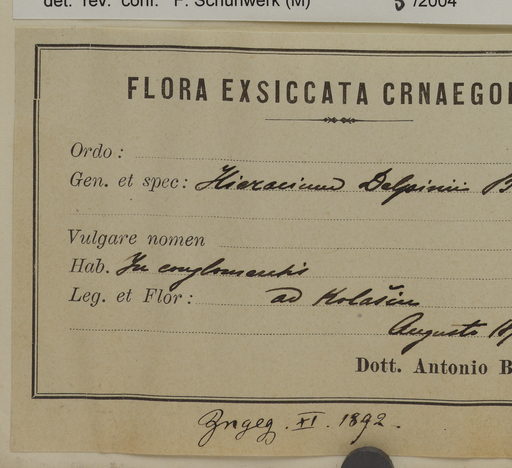 det. rev. conf. F. Schuhwerk (M) 5/2004
FLORA EXSICCATA CRNAEGO
Ordo:
Gen. et spec: Hieracium Delpinii B
Vulgare nomen
Hab. In conglomeratis
Leg. et Flor: ad Kolašin
Augusto
Dott. Antonio B
XI. 1892.